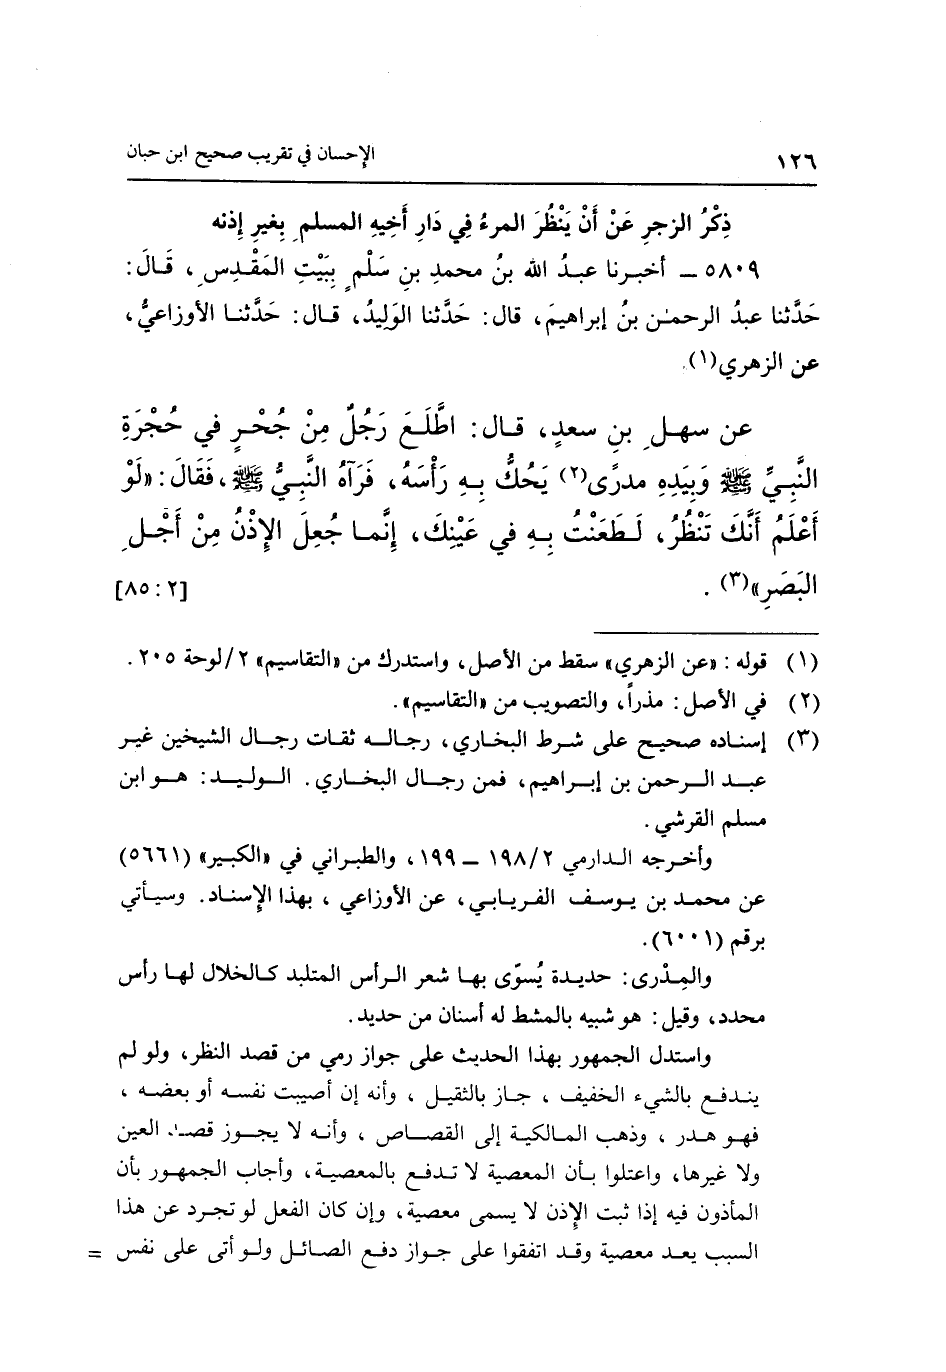 ١٢٦ الإحسان في تقريب صحيح ابن حبان
ذِكْرُ الزجرِ عَنْ أَنْ يَنْظُرَ المرءُ فِي دَارِ أَخِيهِ المسلمِ بِغَيرِ إِذنه
٥٨٠٩ ــ أخبرنا عبدُ الله بنُ محمدِ بنِ سَلْمٍ بِبَيْتِ المَقْدِسِ، قَالَ:
حَدَّثنا عبدُ الرحمٰن بنُ إبراهيمَ، قال: حَدَّثنا الوَلِيدُ، قال: حَدَّثنا الأوزاعيُّ،
عن الزهري(١).
عن سهلِ بنِ سعدٍ، قال: اطَّلَعَ رَجُلٌ مِنْ جُحْرٍ في حُجْرَةِ
النَّبِيِّ ﷺ وَبِيَدِهِ مدرًى(٢) يَحُكُّ بِهِ رَأْسَهُ، فَرَآهُ النَّبِيُّ ﷺ، فَقَالَ: «لَوْ
أَعْلَمُ أَنَّكَ تَنْظُرُ، لَطَعَنْتُ بِهِ في عَيْنِكَ، إِنَّما جُعِلَ الإِذْنُ مِنْ أَجْلِ
البَصَرِ»(٣). [٢: ٨٥]
(١) قوله: «عن الزهري» سقط من الأصل، واستدرك من «التقاسيم» ٢/لوحة ٢٠٥.
(٢) في الأصل: مذراً، والتصويب من «التقاسيم».
(٣) إسناده صحيح على شرط البخاري، رجاله ثقات رجال الشيخين غير
عبد الرحمن بن إبراهيم، فمن رجال البخاري. الوليد: هو ابن
مسلم القرشي.
وأخرجه الدارمي ١٩٨/٢ ــ ١٩٩، والطبراني في «الكبير» (٥٦٦١)
عن محمد بن يوسف الفريابي، عن الأوزاعي، بهذا الإسناد. وسيأتي
برقم (٦٠٠١).
والمِدْرى: حديدة يُسوَّى بها شعر الرأس المتلبد كالخلال لها رأس
محدد، وقيل: هو شبيه بالمشط له أسنان من حديد.
واستدل الجمهور بهذا الحديث على جواز رمي من قصد النظر، ولو لم
يندفع بالشيء الخفيف، جاز بالثقيل، وأنه إن أصيبت نفسه أو بعضه،
فهو هدر، وذهب المالكية إلى القصاص، وأنه لا يجوز قصد العين
ولا غيرها، واعتلوا بأن المعصية لا تدفع بالمعصية، وأجاب الجمهور بأن
المأذون فيه إذا ثبت الإذن لا يسمى معصية، وإن كان الفعل لو تجرد عن هذا
السبب يعد معصية وقد اتفقوا على جواز دفع الصائل ولو أتى على نفس =